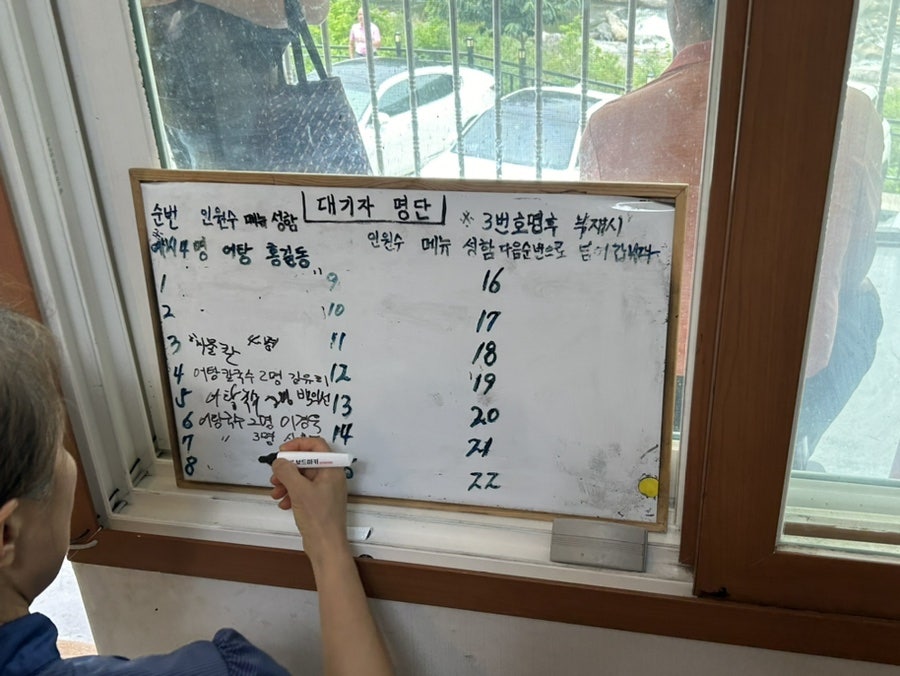 대기자 명단
순번 인원수 메뉴 성함
※ 3번호명후 부재시
다음순번으로 넘어갑니다
예시 4명 어탕 홍길동
인원수 메뉴 성함
1
2
3 4명
4 어탕칼국수 2명 김유리
5
6 어탕국수 2명 이경욱
7 〃 3명
8
9
10
11
12
13
14
16
17
18
19
20
21
22
보드마카